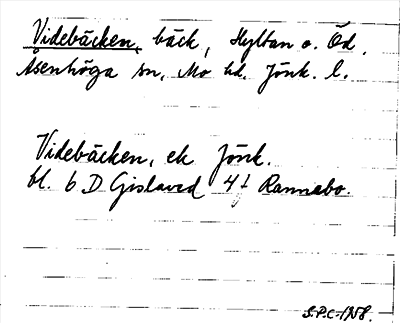 Videbäcken, bäck, Hyltan o. Öd.
Åsenhöga sn, Mo hd. Jönk. l.
Videbäcken, ek Jönk.
bl. 6 D Gislaved 4 f Rannebo.
S.P.C-1958.